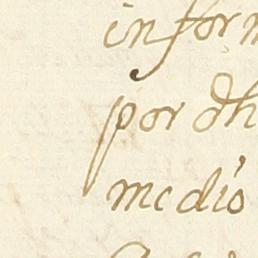 inform
por dh
medio